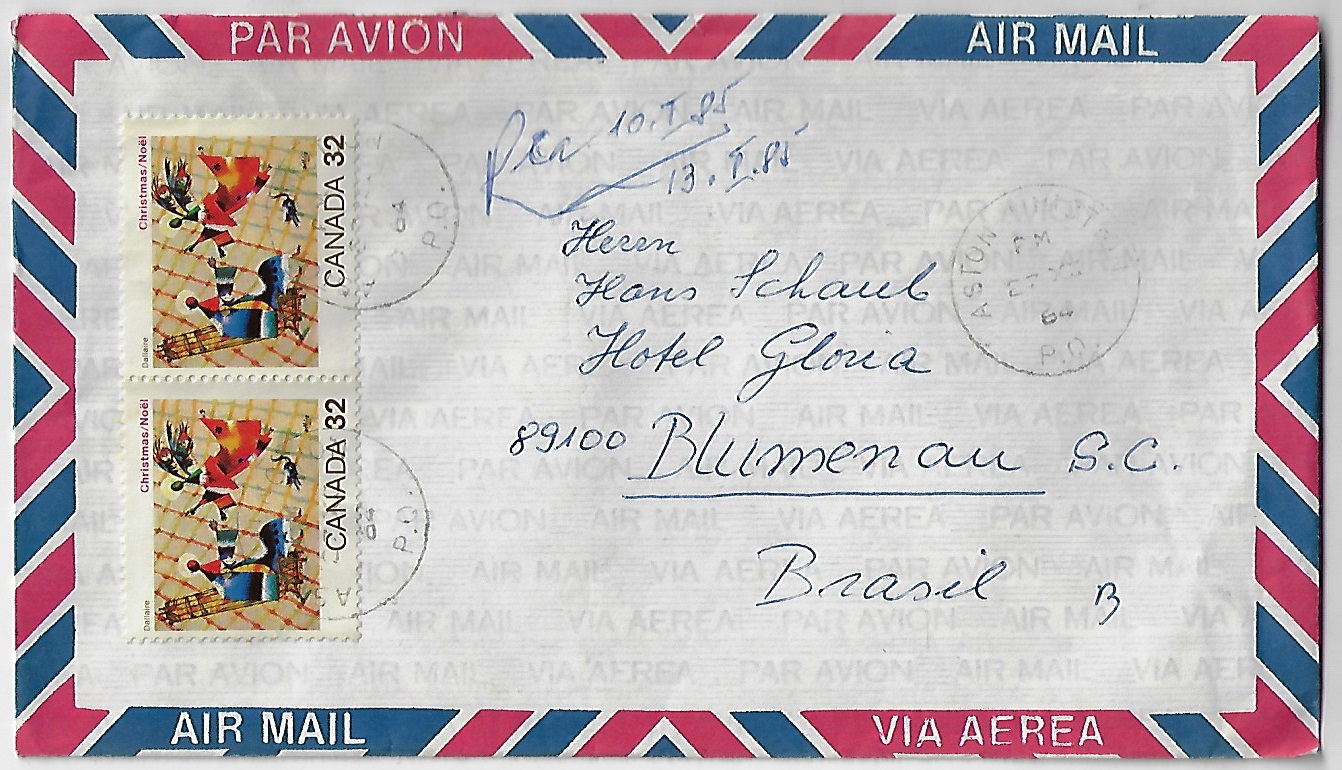 PAR AVION
AIR MAIL
Christmas/Noël
CANADA 32
Dallaire
Christmas/Noël
CANADA 32
Dallaire
10.I.85
13.I.85
Herrn
Hans Schaub
Hotel Gloria
89100 Blumenau S.C.
Brasil
B
ASTON
PM
84
P.O.
P.O.
P.O.
AIR MAIL
VIA AEREA